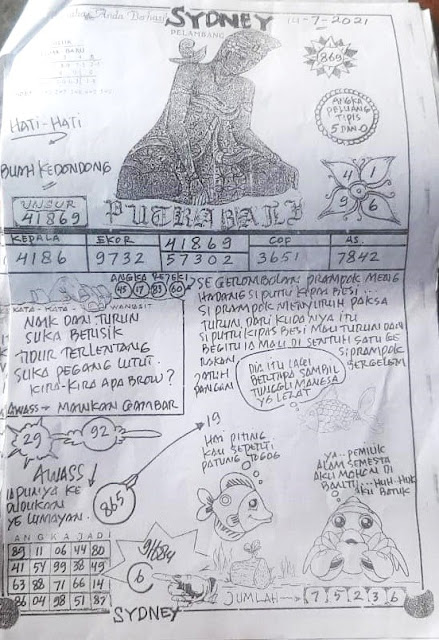 Anda Berhasil
SYDNEY
14-7-2021
PELAMBANG
869
HATI-HATI
ANGKA
PELUANG
TIPIS
5 DAN 0
BUMH KEDONDONG
UNSUR
41869
4 1
9 6
PUTRA BALI
KEPALA EKOR 41869 COP AS.
4186 9732 57302 3651 7842
ANGKA REJEKI
45 17 83 60
KATA-KATA WANGSIT
NAIK DAN TURUN
SUKA BERISIK
TIDUR TERLENTANG
SUKA PEGANG LUTUT.
KIRA-KIRA APA BROW?
AWASS → MAINKAN GAMBAR
SEGEROMBOLAN PRAMPOK MENG
HADANG SI PUTRI KIPAS BESI...
SI PRAMPOK MENYURUH PAKSA
TURUN DARI KUDANYA ITU
SI PUTRI KIPAS BESI MAU TURUN DAN
BEGITU IA MAU DI SENTUH SATU GE
RAKAN SI PRAMPOK
JATUH BERGELEM
PANGAN
DIA ITU LAGI
BERTAPA SAMBIL
TUNGGU MANGSA
YG LEZAT
29
92
19
AWASS
IA PUNYA KE
DUDUKAN
YG LUMAYAN.
865
HAI PITING
KAU SEPERTI
PATUNG JOGOG
YA.. PEMILIK
ALAM SEMESTA
AKU MOHON DI
BANTU...HUH-HUK
AKU BATUK
ANGKA JADI
89 11 06 44 80
41 54 99 38 49
63 88 71 66 14
86 04 98 51 82
91684
6
JUMLAH → 7 5 2 3 6
SYDNEY